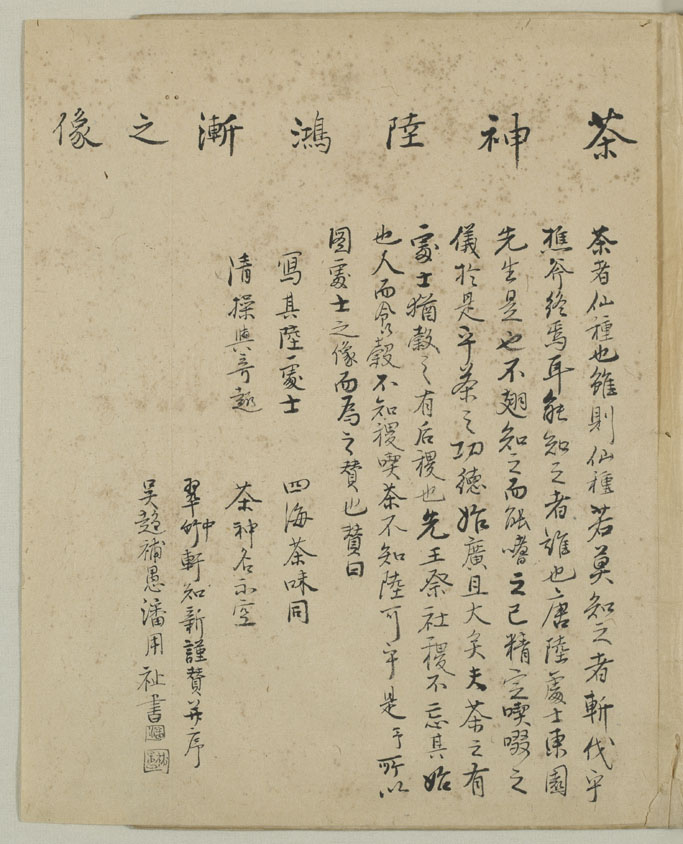 茶神陸鴻漸之像
茶者仙種也雖則仙種若莫知之者斬伐乎
樵斧終焉耳能知之者誰也唐陸處士東園
先生是也不翅知之而能嗜之已精定喫啜之
儀於是乎茶之功德始廣且大矣夫茶之有
處士猶穀之有后稷也先王祭社稷不忘其始
也人而食穀不知稷喫茶不知陸可乎是乎所以
圖處士之像而為之賛也賛曰
寫其陸處士 四海茶味同
清操與奇趣 茶神名不空
翠竹軒知新謹賛并序
中
吳趨補愚潘用祉書